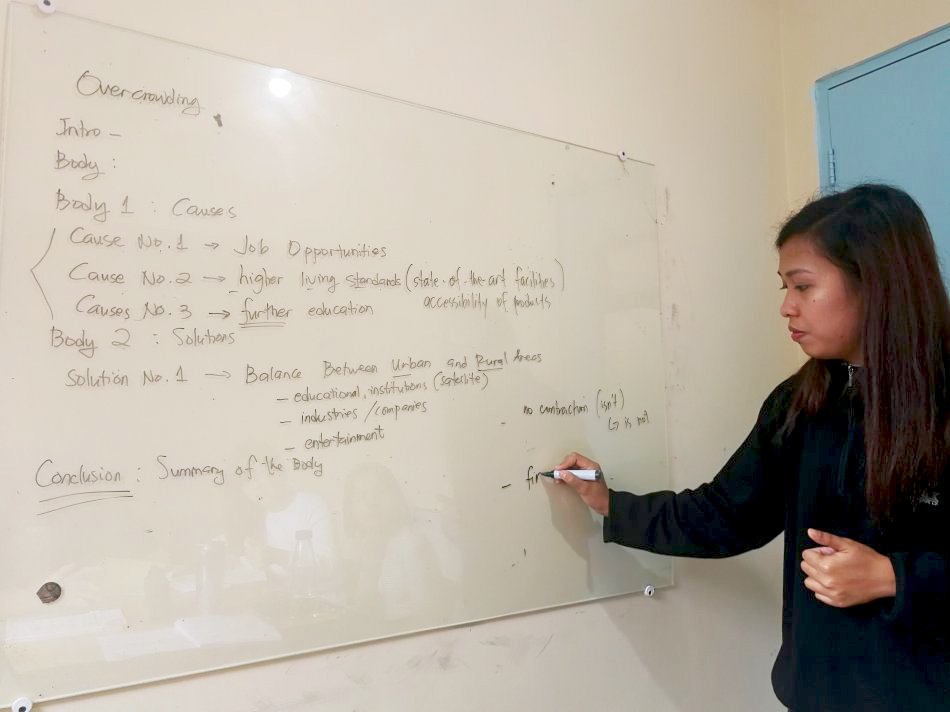 Overcrowding
Intro -
Body :
Body 1 : Causes
Cause No. 1 → Job Opportunities
Cause No. 2 → higher living standards (state-of-the-art facilities)
accessibility of products
Causes No. 3 → further education
Body 2 : Solutions
Solution No. 1 → Balance Between Urban and Rural Areas
- educational institutions (satellite)
- industries / companies
- entertainment
- no contraction (isn't)
↳ is not
Conclusion : Summary of the Body
- fir